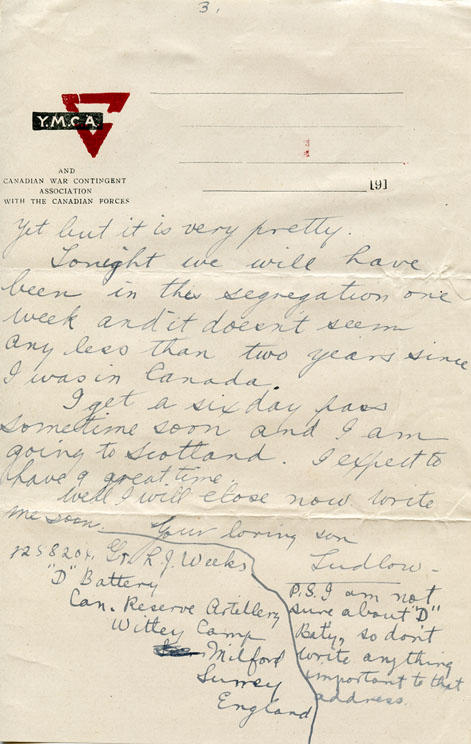 3.
Y.M.C.A.
AND
CANADIAN WAR CONTINGENT
ASSOCIATION
WITH THE CANADIAN FORCES
191
Yet but it is very pretty.
Tonight we will have
been in the segregation one
week and it doesn't seem
any less than two years since
I was in Canada.
I get a six day pass
sometime soon and I am
going to Scotland. I expect to
have a great time
Well I will close now write
me soon.
Your loving son
Ludlow-
1258204. Gr. L. J. Weeks
"D" Battery
Can. Reserve Artillery
Witley Camp
Milford
Surrey
England
P.S. I am not
sure about "D"
Bat'y, so don't
write anything
important to that
address.